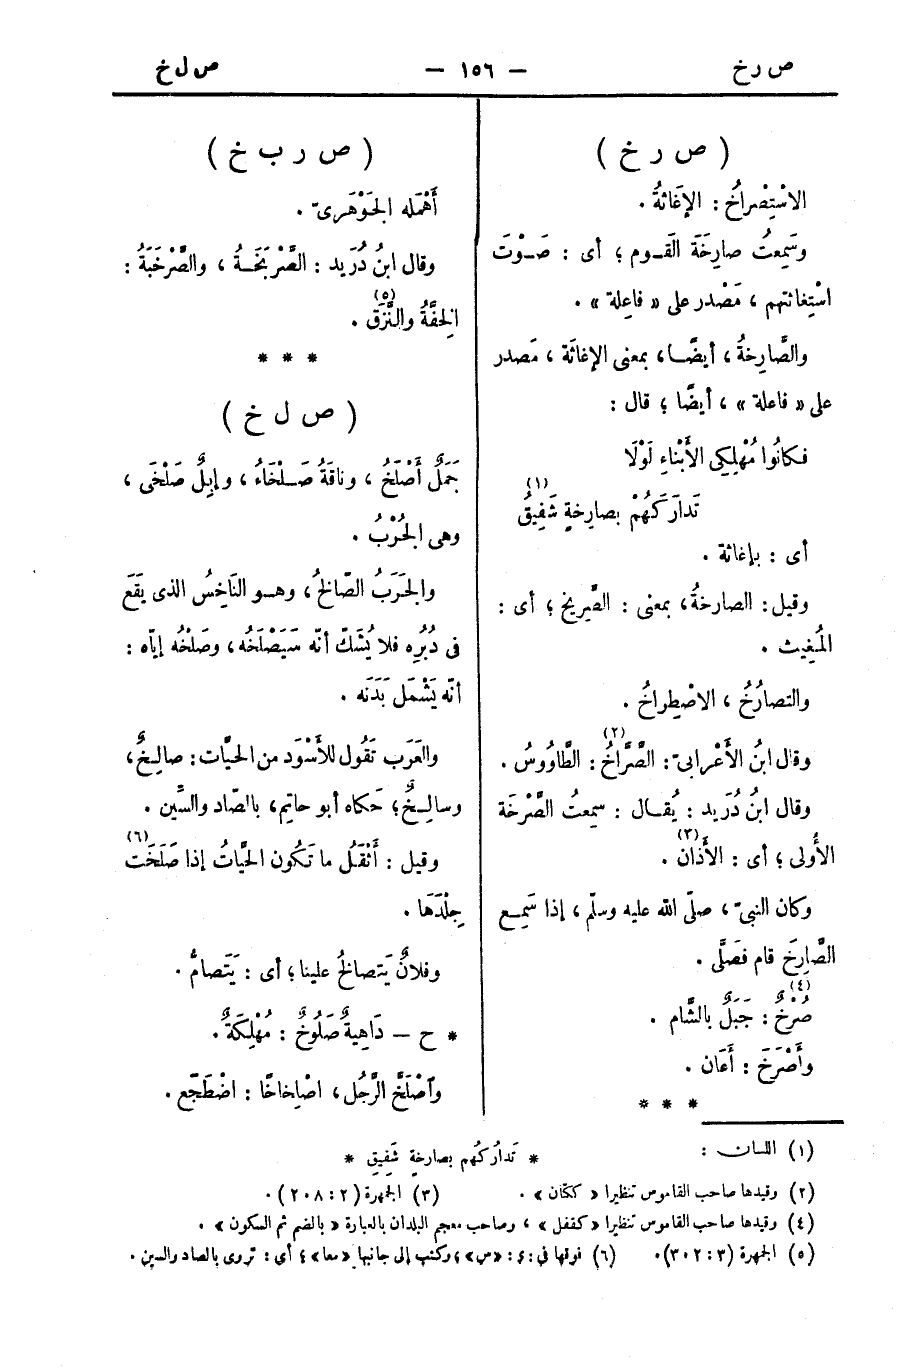 ص ر خ — ١٥٦ — ص ل خ
( ص ر خ )
الاسْتِصْراخُ : الإغَاثةُ .
وسَمِعتُ صارِخَةَ القَـوم ؛ أى : صَـوْتَ
اسْتِغاثتهم ، مَصْدر على « فاعلة » .
والصَّارِخةُ ، أيضًـا ، بمعنى الإغاثَة ، مَصدر
على « فاعلة » ، أيضًا ؛ قال :
فكانُوا مُهْلِكِى الأَبْناءِ لَوْلَا
تَدارَكَهُمْ بصارِخةٍ شَفِيقُ (١)
أى : بإغاثة .
وقيل : الصارخةُ ، بمعنى : الصَّرِيخ ؛ أى :
المُغِيث .
والتصارُخُ ، الاصْطِراخُ .
وقال ابنُ الأَعْرابىّ : الصَّرَّاخُ (٢) : الطَّاوُوسُ .
وقال ابنُ دُرَيد : يُقـال : سمِعتُ الصَّرْخَة
الأُولى ؛ أى : الأَذانَ (٣) .
وكان النبىّ ، صلّى الله عليه وسلّم ، إذا سَمِـع
الصَّارِخَ قام فصَلَّى .
صُرْخٌ (٤) : جَبَلٌ بالشَّام .
وأَصْرَخَ : أَعَان .
* * *
( ص ر ب خ )
أَهْمَله الجَوْهَرىّ .
وقال ابنُ دُرَيد : الصَّرْبَخَـةُ ، والصَّرْخَبَةُ :
الخِفَّةُ والنَّزَق (٥) .
* * *
( ص ل خ )
جَمَلٌ أَصْلَخُ ، وناقَةُ صَـلْخَاءُ ، وإبِلٌ صَلْخَى ،
وهى الجُرْبُ .
والجَرَبُ الصّالخُ ، وهـو النّاخِسُ الذى يَقَع
فى دُبُرِه فلا يُشَكّ أنّه سَيَصْلَخُه ، وصَلْخُه إيّاه :
أنّه يَشْمَل بَدَنَه .
والعَرَب تَقُول للأَسْوَد من الحَيَّات : صالِـخٌ ،
وسالِـخٌ ؛ حَكاه أبو حاتِم ، بالصّاد والسِّين .
وقيل : أَثْقَلُ ما تَكُون الحَيَّاتُ إذا صَلَخَت (٦)
جِلْدَهَا .
وفلانٌ يَتصالَخُ علينا ؛ أى : يَتَصامُّ .
* ح — دَاهِيةٌ صَلُوخٌ : مُهْلِكَةٌ .
وٱصْلَخَّ الرَّجُل ، اصْلِخاخًا : اضْطَجَع .
(١) اللسان : * تَدارُكُهم بصارخةٍ شَفِيقِ *
(٢) وقيدها صاحب القاموس تنظيرا « ككتّان » . (٣) الجمهرة (٢ : ٢٠٨) .
(٤) وقيدها صاحب القاموس تنظيرا « كقفل » ، وصاحب معجم البلدان بالعبارة « بالضم ثم السكون » .
(٥) الجمهرة (٣ : ٣٠٢) . (٦) فوقها فى : ٤ : «س» ، وكتب إلى جانبها «معا» ؛ أى : تروى بالصاد والسين .